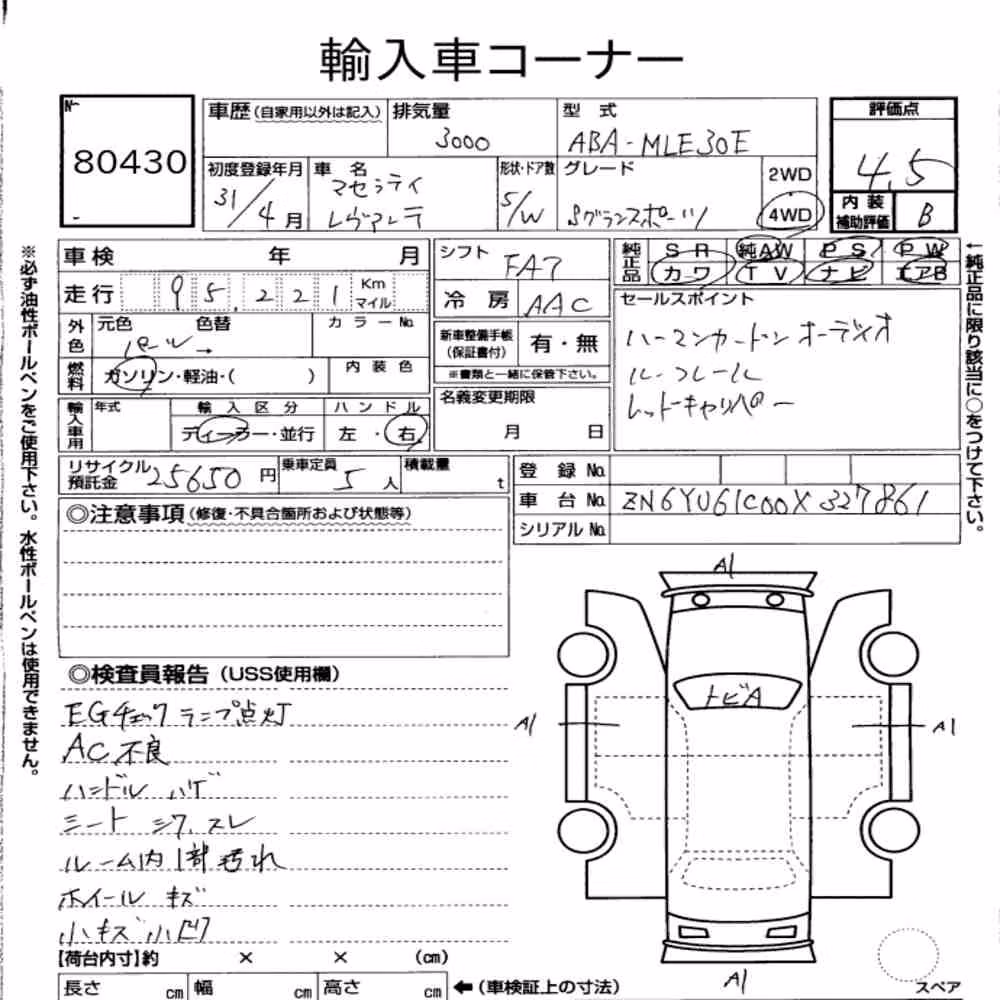 輸入車コーナー
No
80430
車歴(自家用以外は記入) 排気量 3000 型式 ABA-MLE30E 評価点 4.5
初度登録年月 31/4月 車名 マセラティ レヴァンテ 形状・ドア数 5/W グレード Sグランスポーツ 2WD 4WD
内装補助評価 B
車検 年 月
シフト FA7
純正品 SR 純AW PS PW
カワ TV ナビ エアB
走行 95,221 Km マイル
冷房 AAC
セールスポイント
ハーマンカードンオーディオ
ルーフレール
レッドキャリパー
外色 元色 パール→ 色替 カラーNo.
新車整備手帳(保証書付) 有・無
※書類と一緒に保管下さい。
燃料 ガソリン・軽油・( ) 内装色
名義変更期限
月 日
輸入車用 年式 輸入区分 ハンドル
ディーラー・並行 左・右
リサイクル預託金 25650円 乗車定員 5人 積載量 t
登録No.
車台No. ZN6YU61C00X327861
シリアルNo.
◎注意事項(修復・不具合箇所および状態等)
◎検査員報告(USS使用欄)
EGチェックランプ点灯
AC不良
ハンドル ハゲ
シート シワ、スレ
ルーム内1部汚れ
ホイール キズ
小キズ小凹
A1
トビA
A1
A1
A1
【荷台内寸】約 × × (cm)
長さ cm 幅 cm 高さ cm ←(車検証上の寸法)
スペア
※必ず油性ボールペンをご使用下さい。水性ボールペンは使用できません。
←純正品に限り該当に○をつけて下さい。